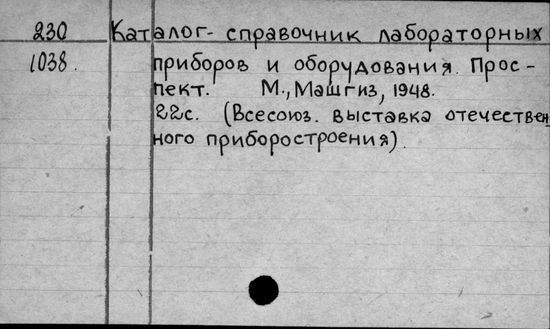 230 Каталог-справочник лабораторных
1038. приборов и оборудования. Прос-
пект. М., Машгиз, 1948.
22с. (Всесоюз. выставка отечествен
ного приборостроения).